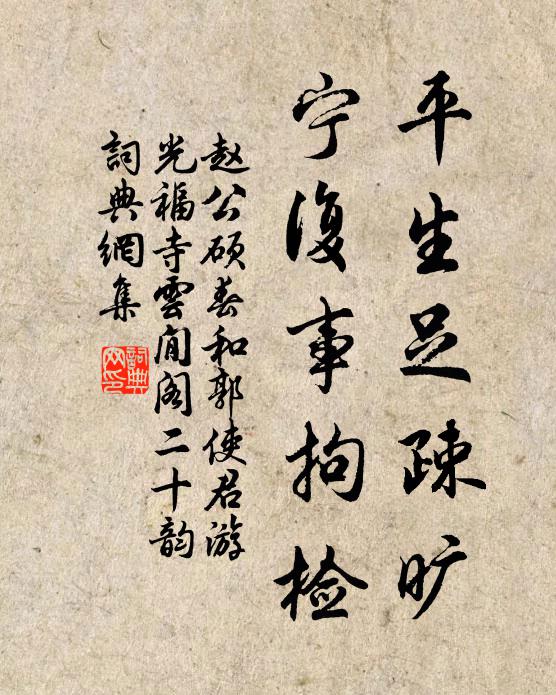 平生足疎旷
宁復事拘检
赵公硕春和郭使君游
光福寺雲间阁二十韵
詞典網集
詞典网印